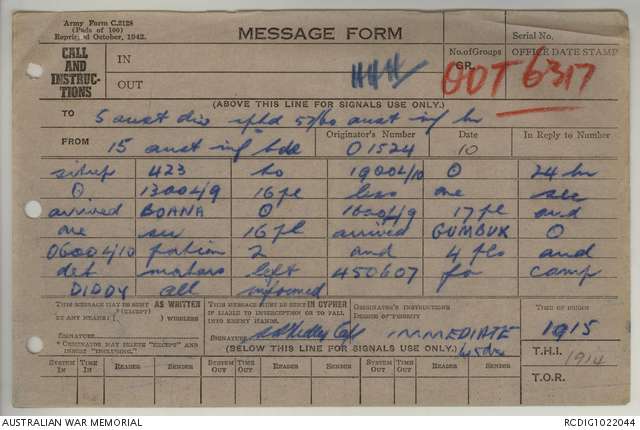 Army Form C.2128
(Pads of 100)
Reprinted October, 1942.
MESSAGE FORM
Serial No.
CALL AND INSTRUC-TIONS
IN
OUT
No. of Groups
GR.
OFFICE DATE STAMP
6317
(ABOVE THIS LINE FOR SIGNALS USE ONLY.)
TO 5 aust div rptd 57/60 aust inf bn
Originator's Number
Date
In Reply to Number
FROM 15 aust inf bde
O1524
10
sitrep 423 to 1900L/10 O 24 hr
O 1300L/9 16 pl less one sec
arrived BOANA O 1600L/9 17 pl and
one sec 16 pl arrived GUMBUK O
0600L/10 2 and 4 pls and
det mortars left 450607 for camp
DIDDY all informed
THIS MESSAGE MAY BE SENT AS WRITTEN (EXCEPT) BY ANY MEANS ( ) WIRELESS
SIGNATURE
* ORIGINATOR MAY DELETE "EXCEPT" AND INSERT "INCLUDING."
THIS MESSAGE MUST BE SENT IN CYPHER IF LIABLE TO INTERCEPTION OR TO FALL INTO ENEMY HANDS.
SIGNATURE Capt
ORIGINATOR'S INSTRUCTIONS
DEGREE OF PRIORITY
IMMEDIATE
TIME OF ORIGIN
1915
T.H.I. 1914
T.O.R.
(BELOW THIS LINE FOR SIGNALS USE ONLY.)
SYSTEM IN
TIME IN
READER
SENDER
SYSTEM OUT
TIME OUT
READER
SENDER
SYSTEM OUT
TIME OUT
READER
SENDER
AUSTRALIAN WAR MEMORIAL
RCDIG1022044